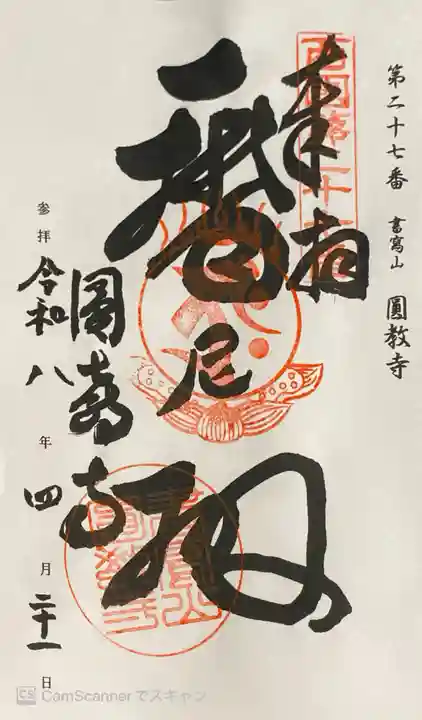 第二十七番 書寫山 圓教寺
奉拝
摩尼殿
圓教寺
参拝 令和八年四月二十一日
CS CamScannerでスキャン